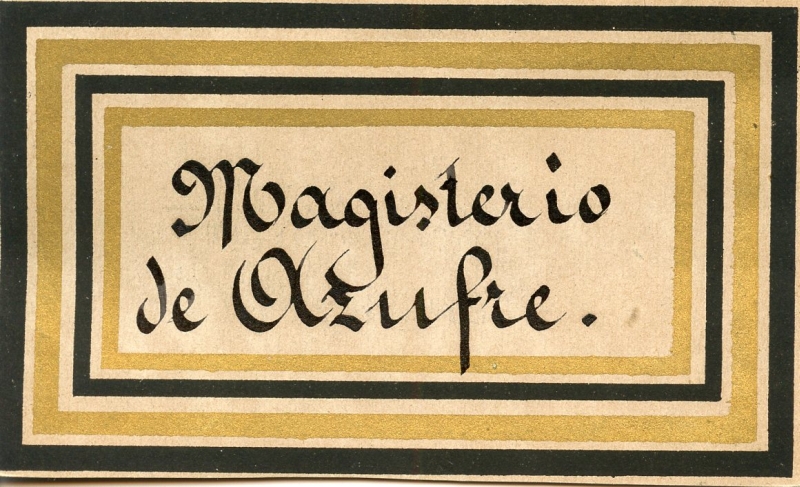 Magisterio
de Azufre.